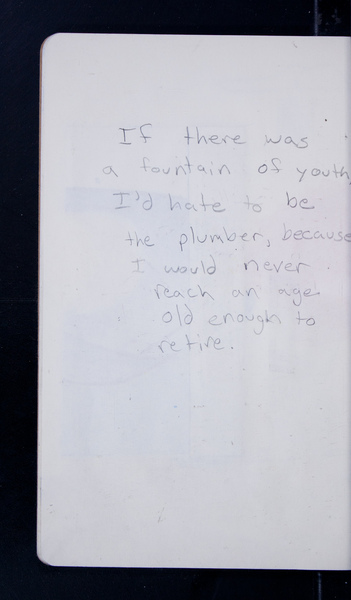 If there was
a fountain of youth,
I'd hate to be
the plumber, because
I would never
reach an age
old enough to
retire.